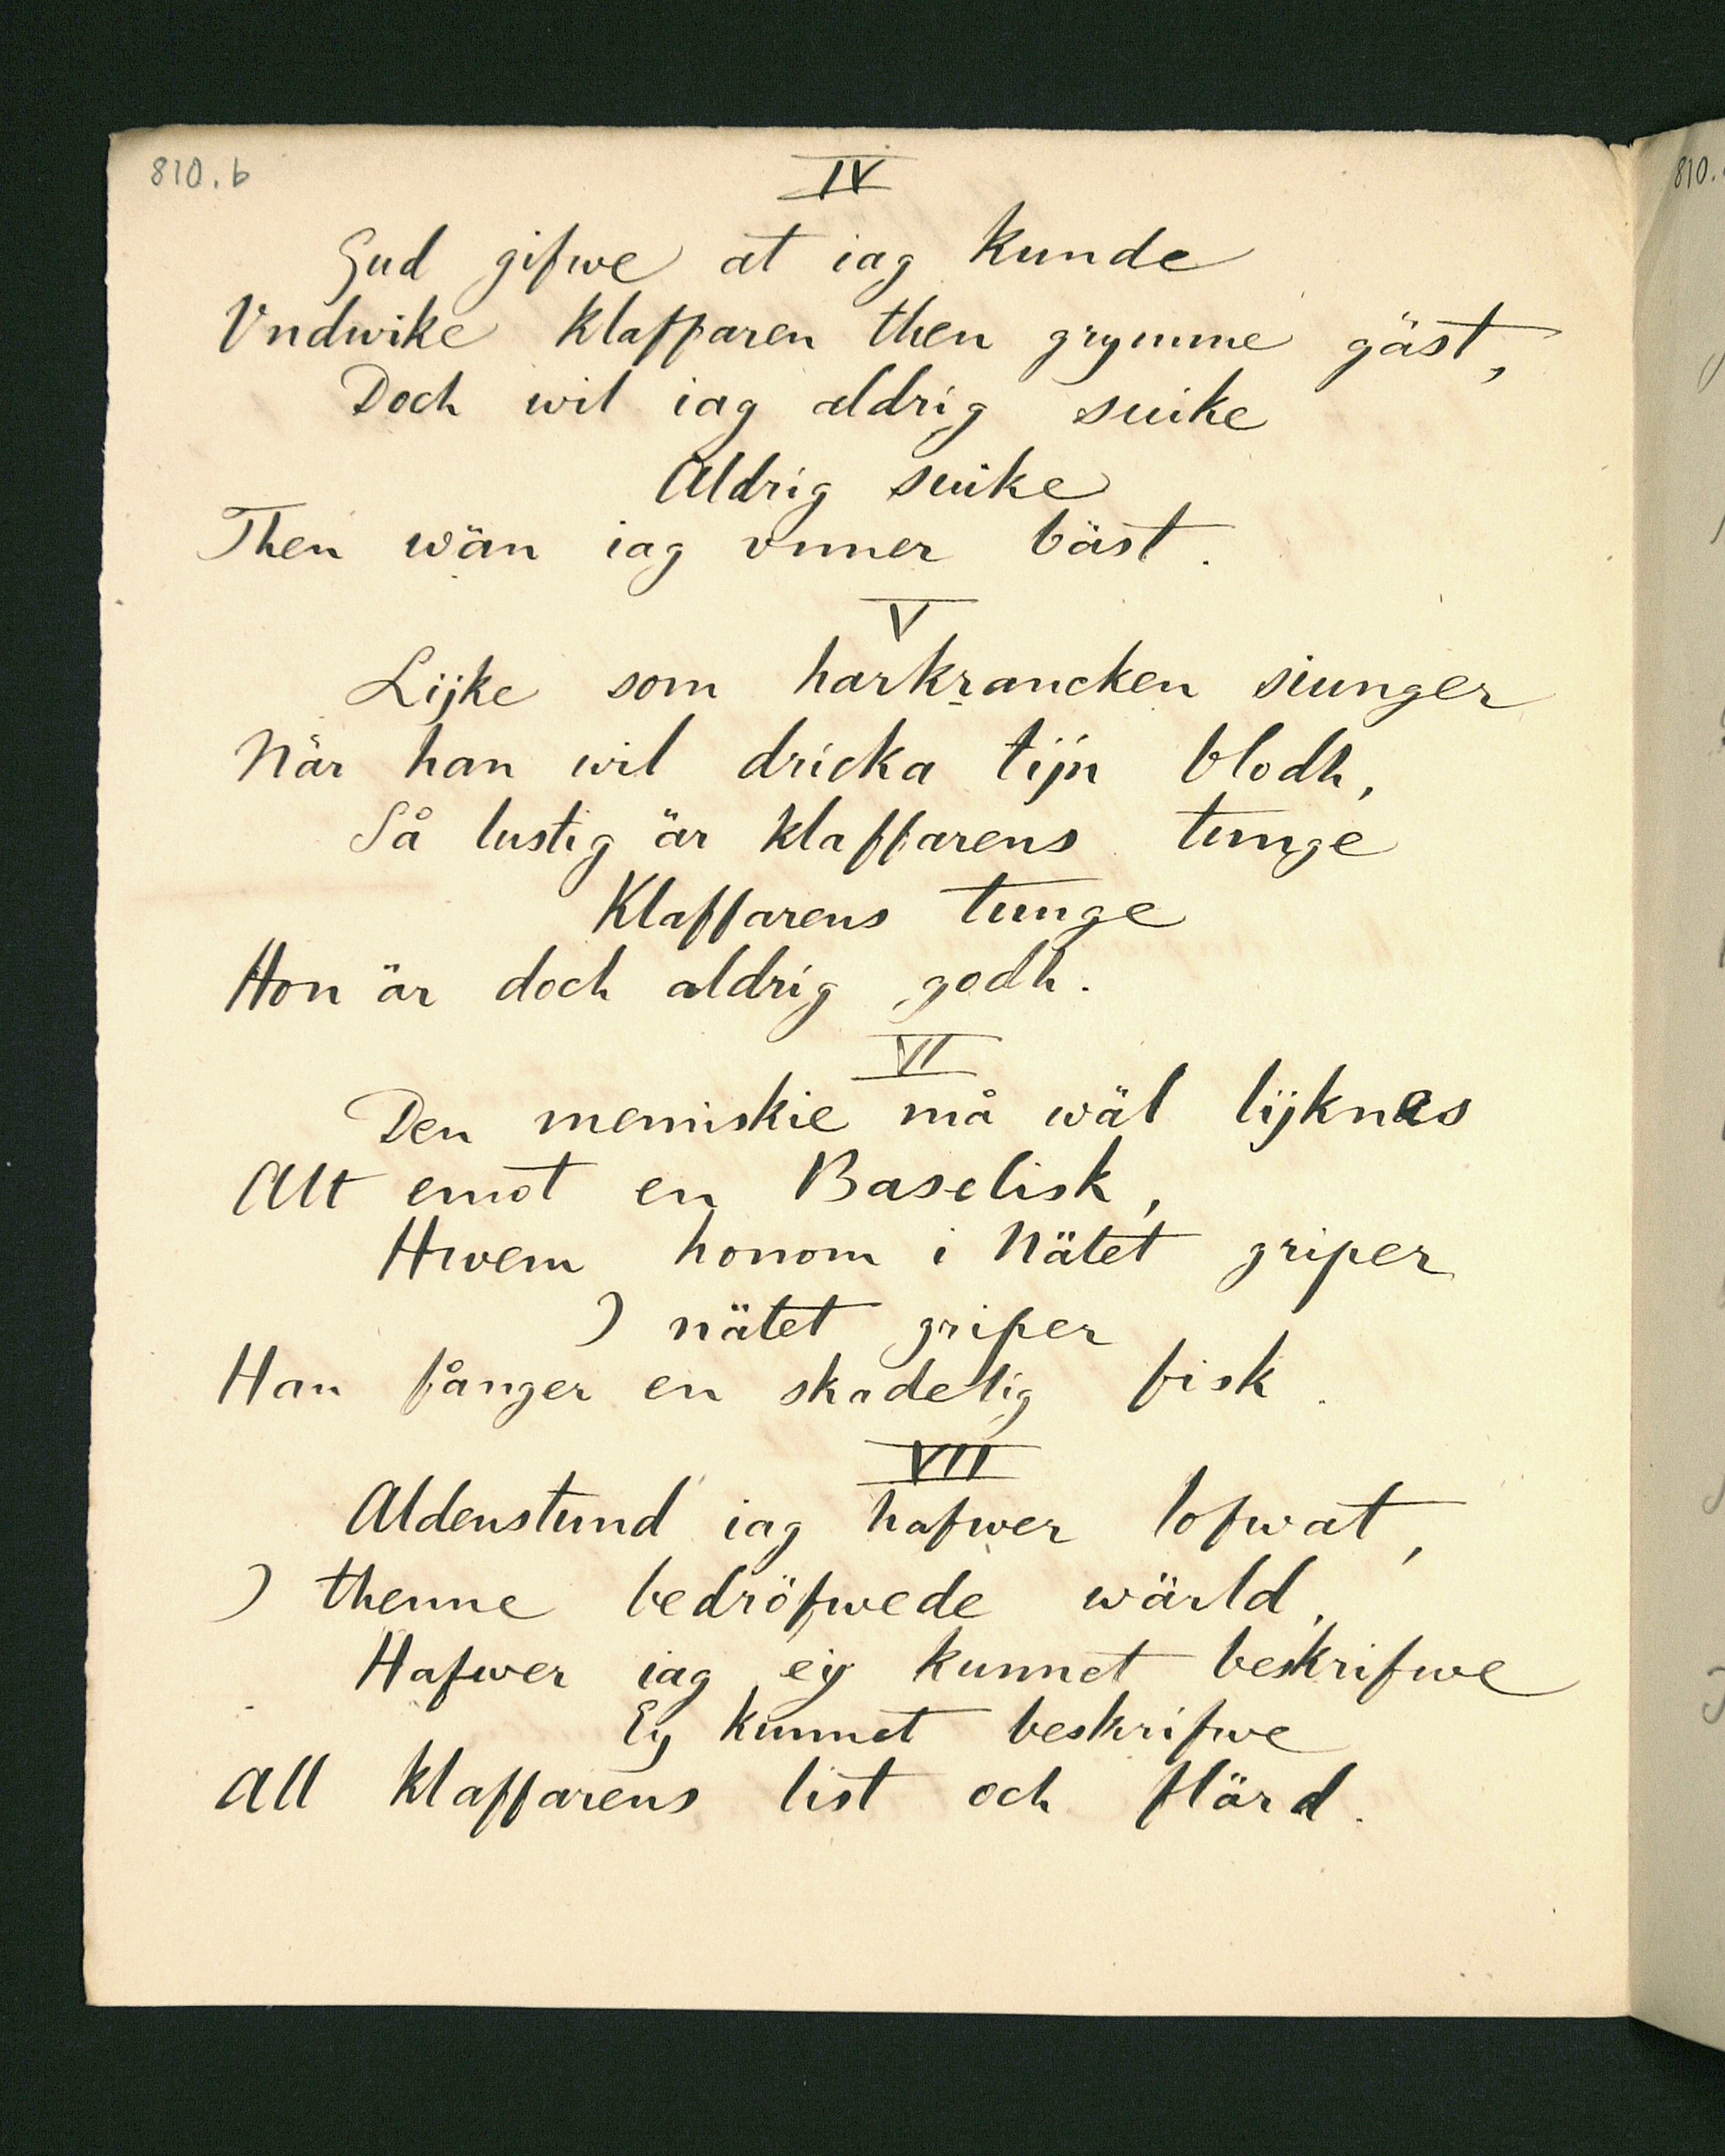 810.b
IV
Gud gifwe at iag kunde
Vndwike klaffaren then grymme gäst,
Doch wil iag aldrig suike
Aldrig suike
Then wän iag vnner bäst.
V
Lijke som harkrancken siunger
När han wil dricka tijn blodh,
Så lustig är klaffarens tunge
Klaffarens tunge
Hon är doch aldrig godh.
VI
Den menniskie må wäl lijknas
Alt emot en Baselisk,
Hwem honom i Nätet griper
J nätet griper
Han fånger en skadelig fisk.
VII
Aldenstund iag hafwer lofwat,
J thenne bedröfwede wärld,
Hafwer iag eij kunnet beskrifwe
Ey kunnet beskrifwe
All klaffarens list och flärd.
810.